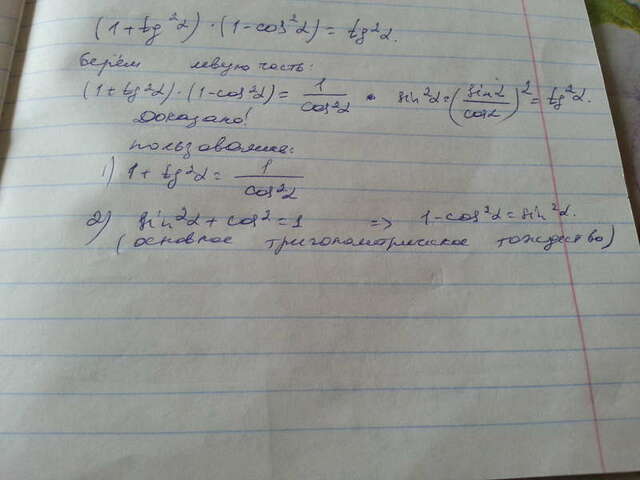 (1+tg²α)·(1-cos²α)=tg²α.
берём левую часть:
(1+tg²α)·(1-cos²α)=1/cos²α · sin²α=(sinα/cosα)²=tg²α.
Доказано!
пользовались:
1) 1+tg²α=1/cos²α
2) sin²α+cos²=1 => 1-cos²α=sin²α.
(основное тригонометрическое тождество)